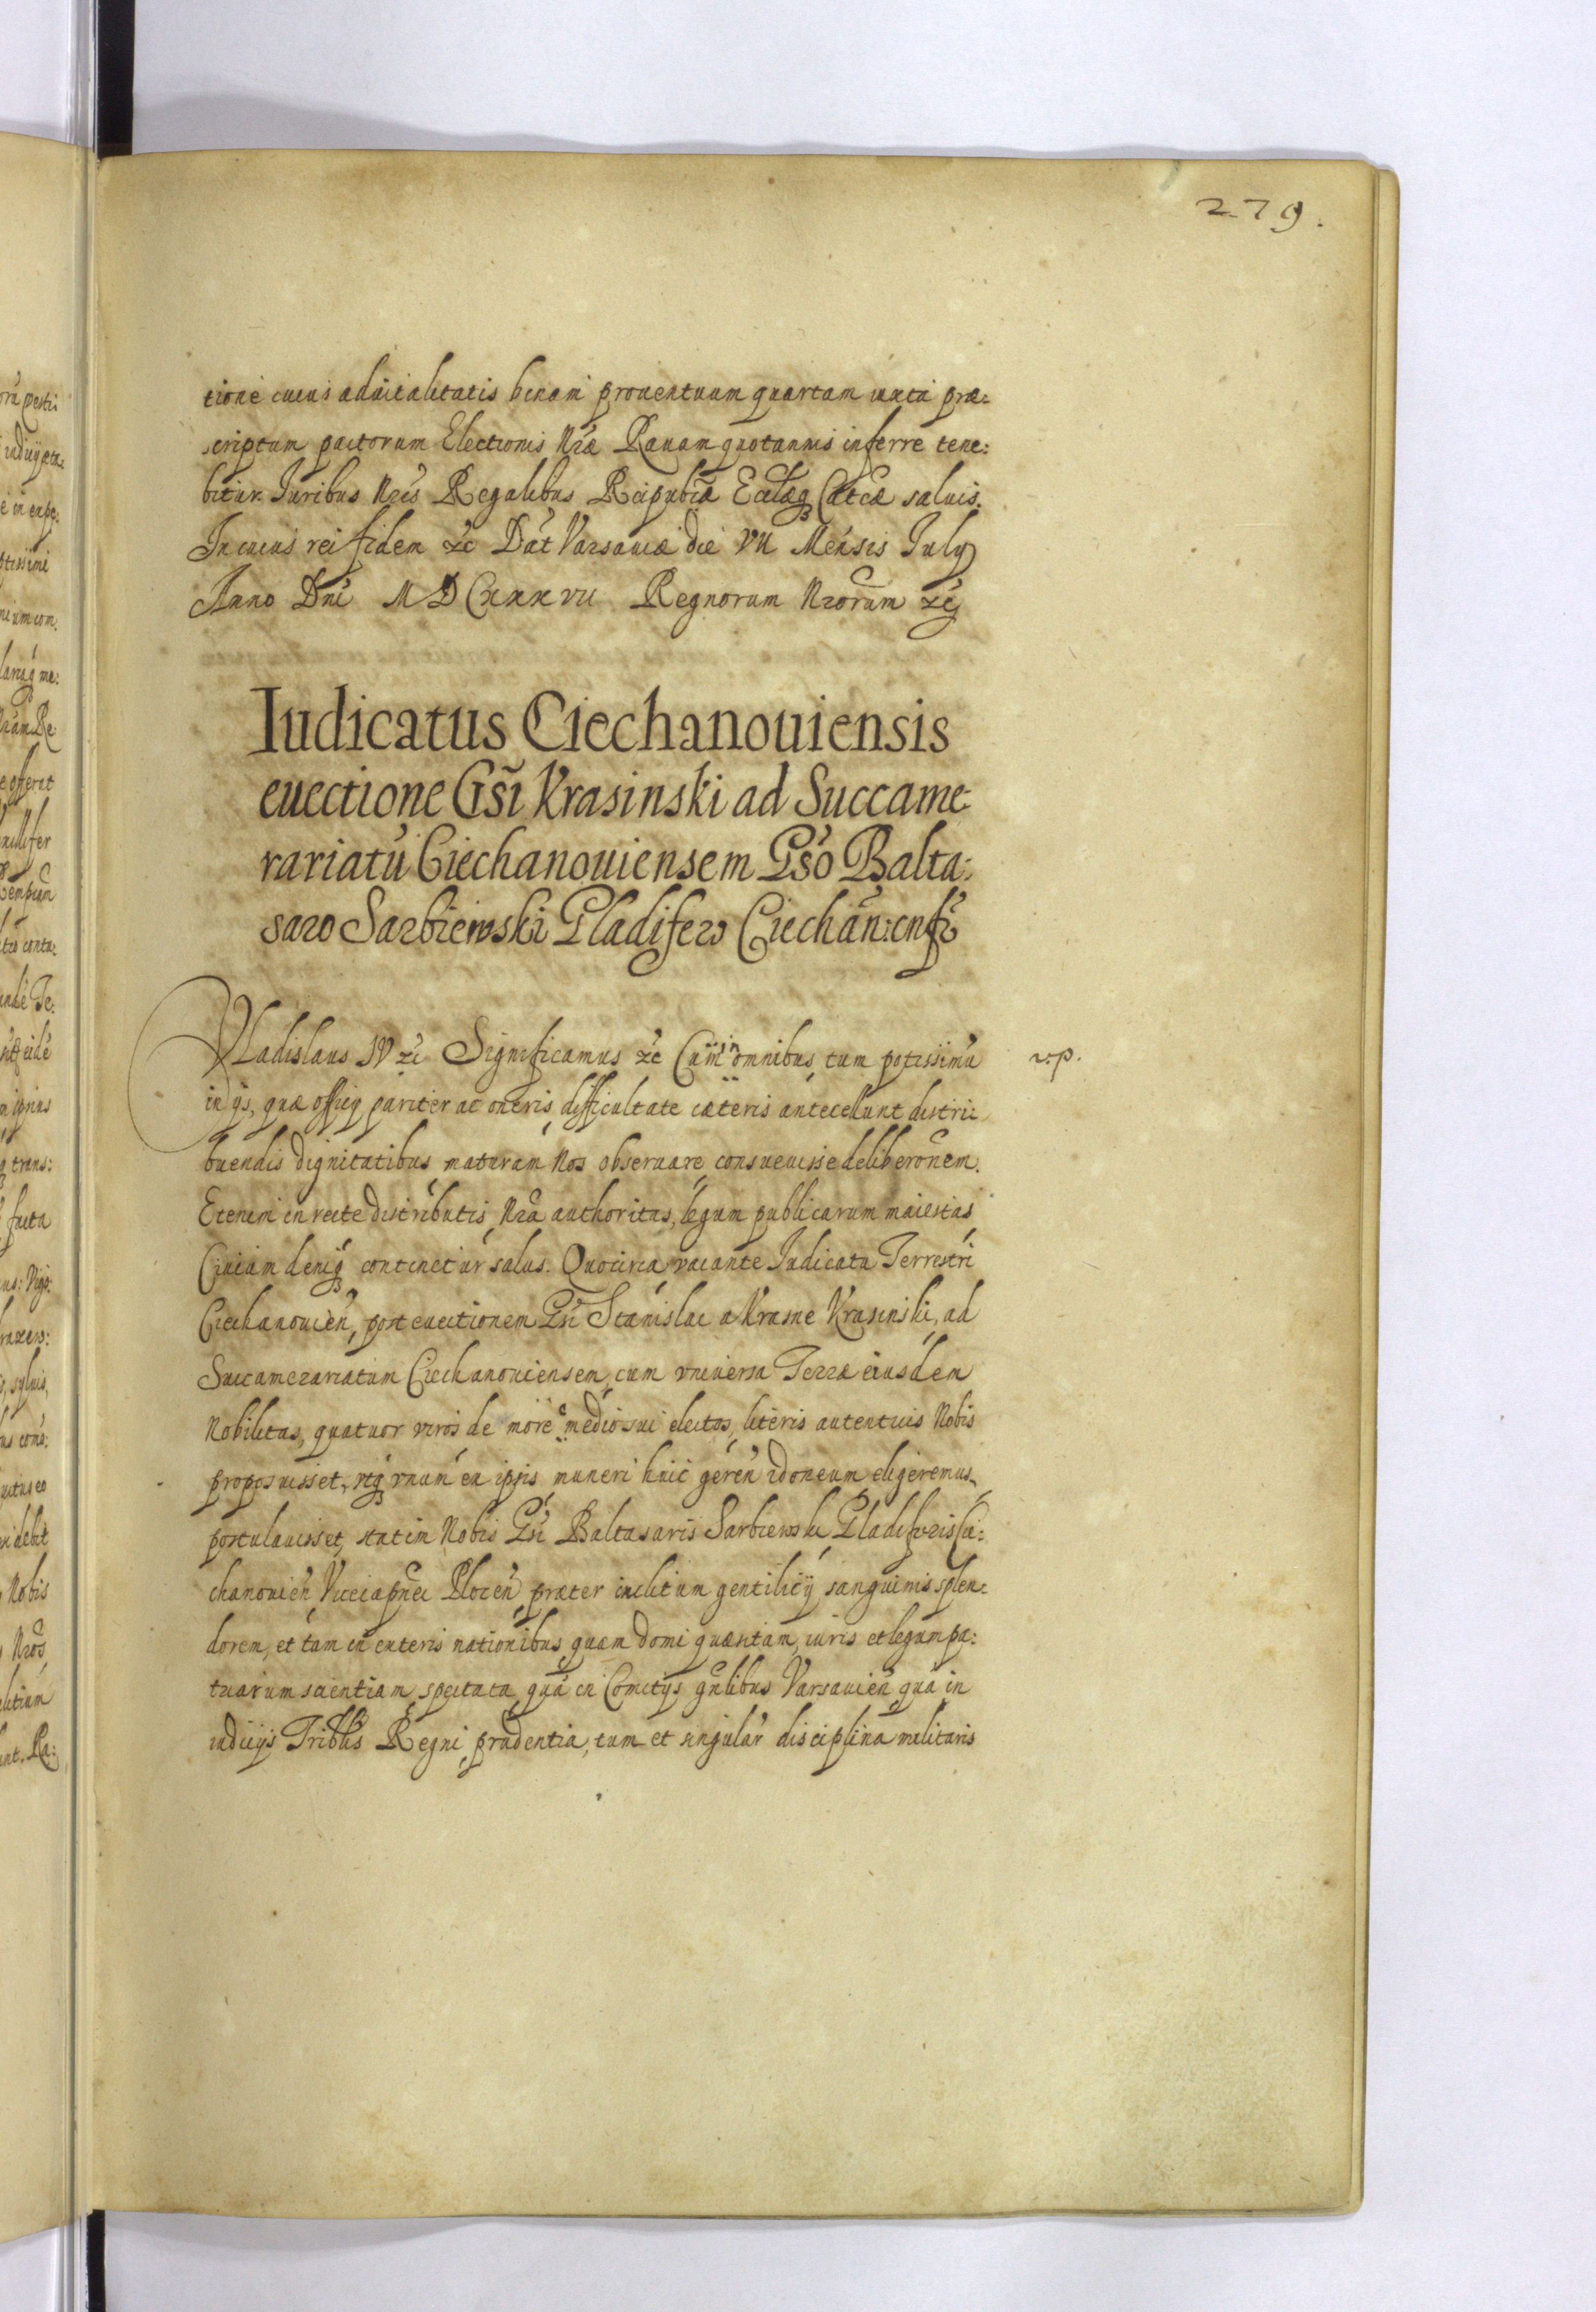 279.
tione cuius aduitalitatis binam prouentuum quartam iuxta præ:
scriptum pactorum Electionis Nræ Rauam quotannis inferre tene:
bitur. Iuribus Nris Regalibus Reipublicæ Ecclæq Catcæ saluis.
In cuius rei fidem &c Dat Varsauiæ die VII Mensis Iuly
Anno Dni MDCXXXVII Regnorum Nrorum &c
Iudicatus Ciechanouiensis
euectione Gsi Krasinski ad Succame:
rariatu Ciechanouiensem Gso Balta:
saro Sarbiewski Gladifero Ciechan: cnfr
Vladislaus IV &c Significamus &c Cum in omnibus, tum potissimu
in ys, quæ officy pariter ac oneris difficultate cæteris antecellunt distri:
buendis dignitatibus, maturam Nos obseruare consueuisse deliberonem.
Etenim in recte distributis, Nra authoritas, legum publicarum maiestas
Ciuium deniq continetur salus. Quocirca vacante Iudicatu Terrestri
Ciechanouien, post euectionem Gsi Stanislai a Krasne Krasinski, ad
Succamerariatum Ciechanouiensem, cum vniuersa Terræ eiusdem
Nobilitas, quatuor viros de more e medio sui electos, literis autenticis Nobis
proposuisset, vtq vnum ex ipsis muneri huic geren idoneum eligeremus,
postulauisset, statim Nobis Gsi Baltasaris Sarbiewski Gladiferis Ci:
chanouien Vicecapnei Plocen præter inclitum gentilicij sanguinis splen:
dorem, et tam in exteris nationibus, quam domi quæsitam, iuris et legum pa:
triarum scientiam, spectata, qua in Comitys gnlibus Varsauien, qua in
iudicijs Tribllis Regni, prudentia, tum et singular disciplina militaris